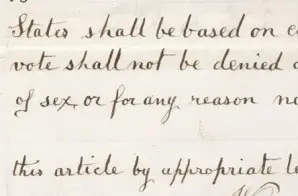 States shall be based on
vote shall not be denied
of sex, or for any reason
this article by appropriate